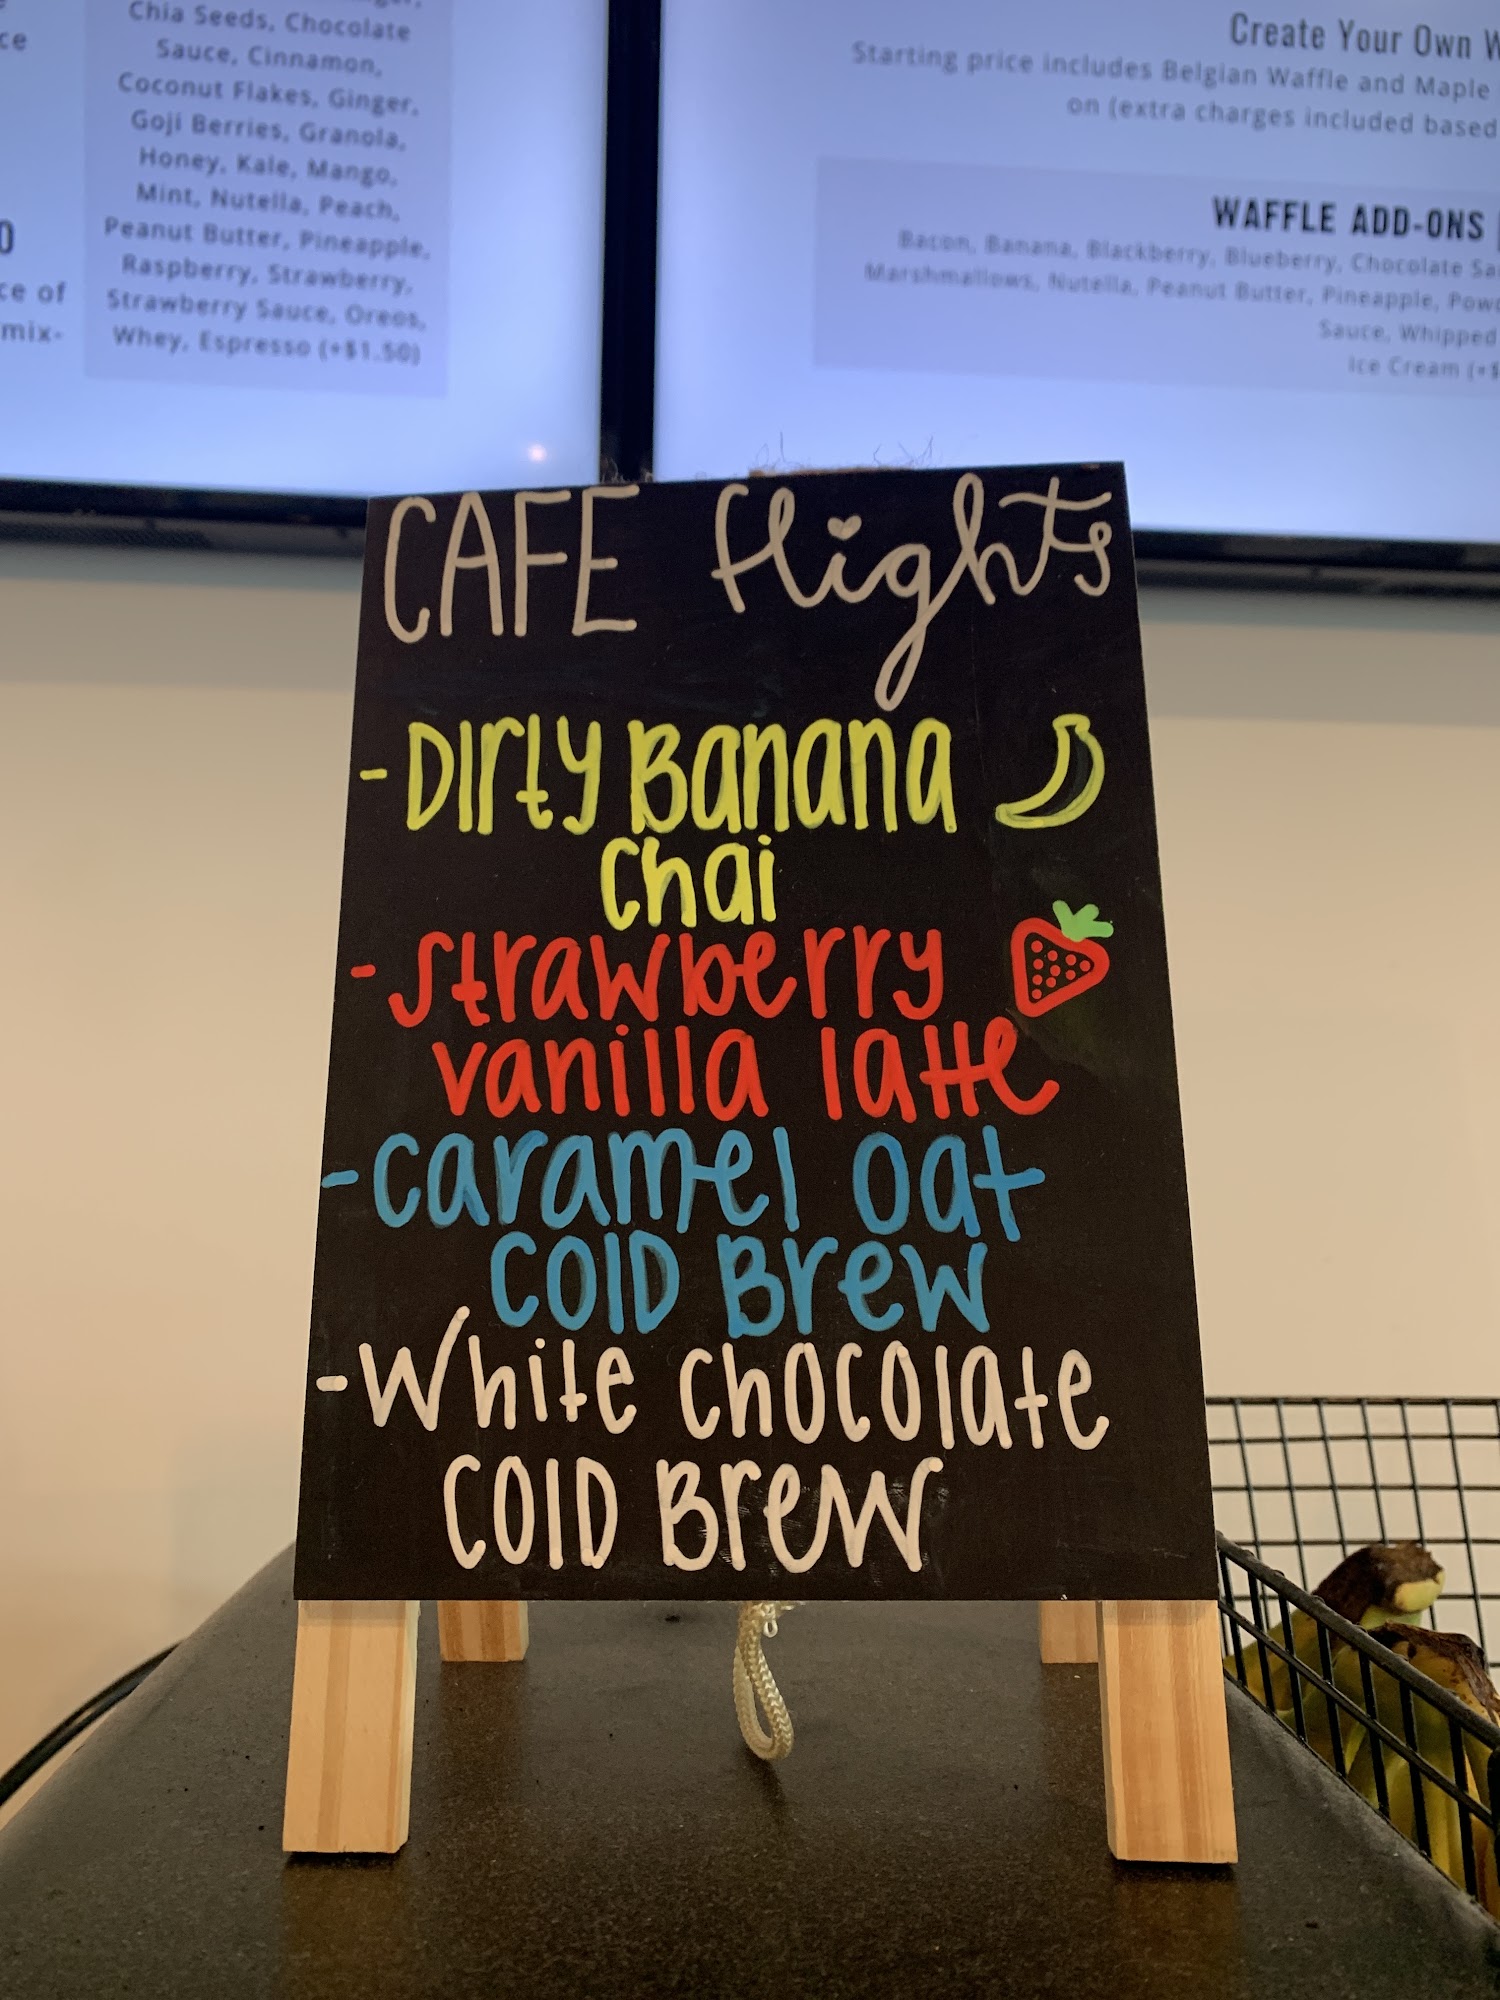 ce
Chia Seeds, Chocolate
Sauce, Cinnamon,
Coconut Flakes, Ginger,
Goji Berries, Granola,
Honey, Kale, Mango,
Mint, Nutella, Peach,
Peanut Butter, Pineapple,
Raspberry, Strawberry,
Strawberry Sauce, Oreos,
Whey, Espresso (+$1.50)
ce of
mix-
Create Your Own W
Starting price includes Belgian Waffle and Maple
on (extra charges included based
WAFFLE ADD-ONS
Bacon, Banana, Blackberry, Blueberry, Chocolate Sa
Marshmallows, Nutella, Peanut Butter, Pineapple, Powd
Sauce, Whipped
Ice Cream (+$
CAFE flights
-Dirty Banana
Chai
-strawberry
vanilla latte
-caramel oat
COLD Brew
-White chocolate
COLD Brew